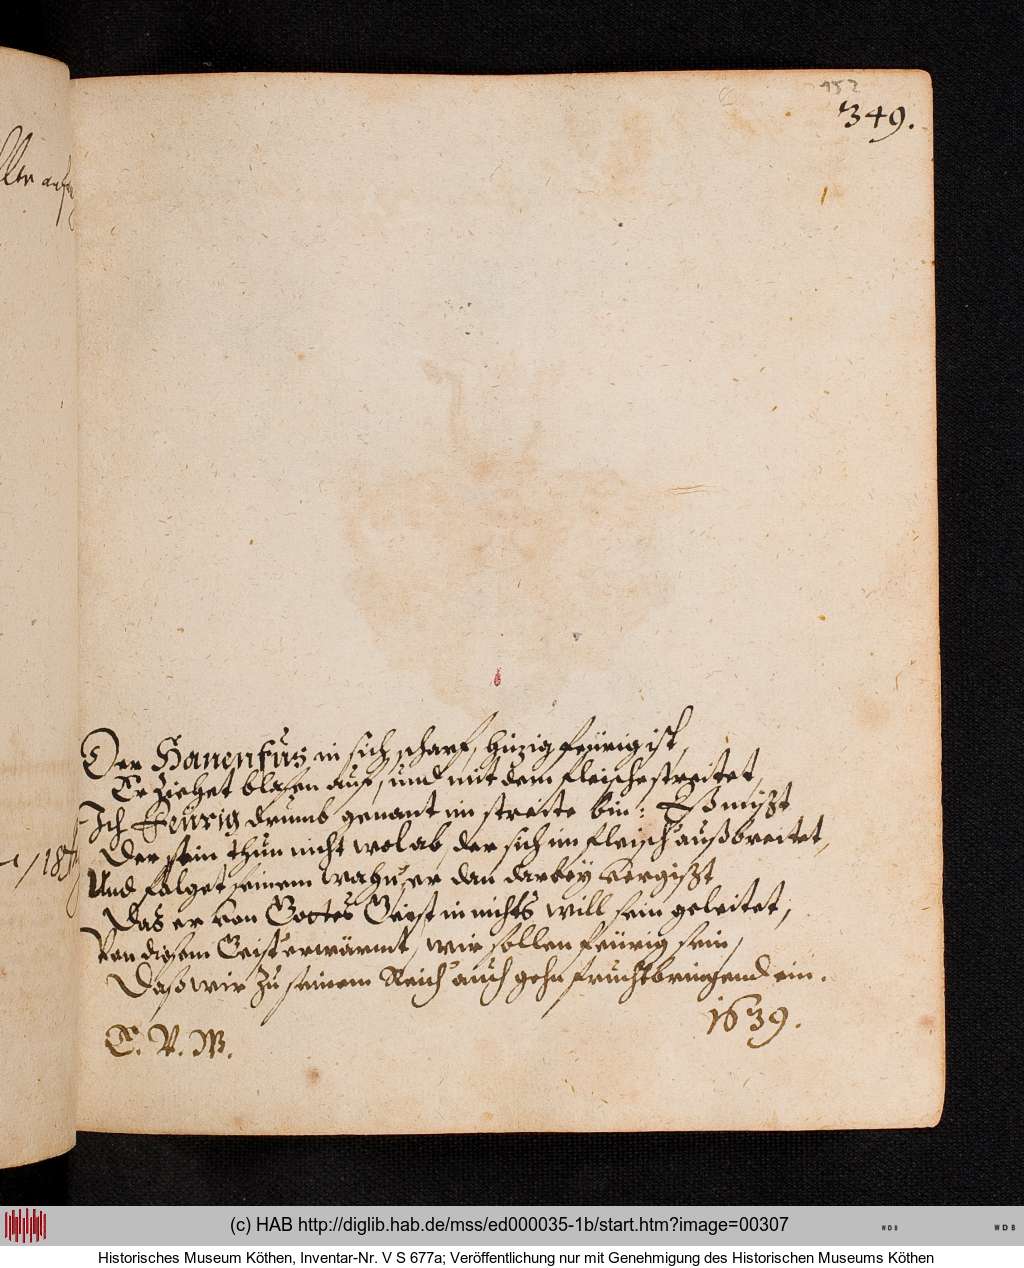 152
349.
Der Hanenfus in sich scharf, hitzig feürig ist,
Er Ziehet blasen auf, und mit dem fleische streitet,
Ich Feürig drumb genant im streite bin: Eß mißt
Der sein thun nicht wol ab, der sich im fleisch' außbreitet,
Und folget seinem wahn', er dan darbey vergißt
Das er von Gottes Geist in nichts will sein geleitet,
Von diesem Geist' erwärmt, wir sollen feürig sein,
Daß wir zu seinem Reich' auch gehn fruchtbringend ein.
C. V. W.
1639.
(c) HAB http://diglib.hab.de/mss/ed000035-1b/start.htm?image=00307
WDB
WDB
Historisches Museum Köthen, Inventar-Nr. V S 677a; Veröffentlichung nur mit Genehmigung des Historischen Museums Köthen